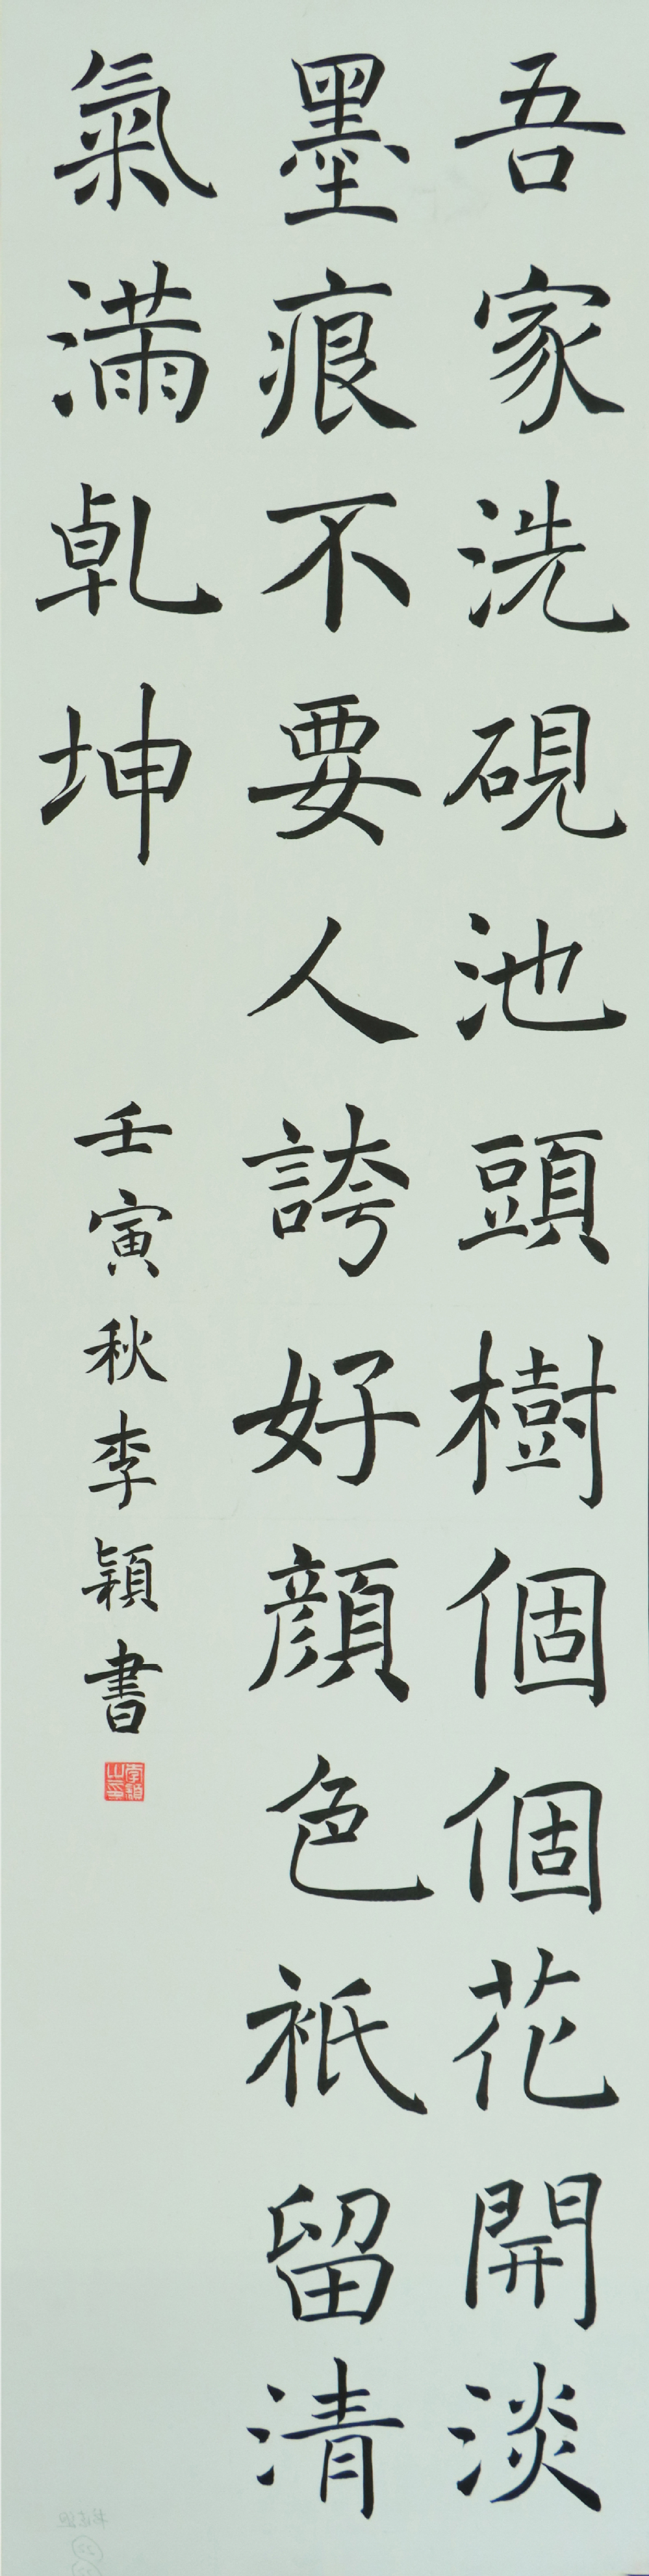 吾家洗硯池頭樹個個花開淡
墨痕不要人誇好顔色祇留清
氣滿乹坤
壬寅秋李穎書